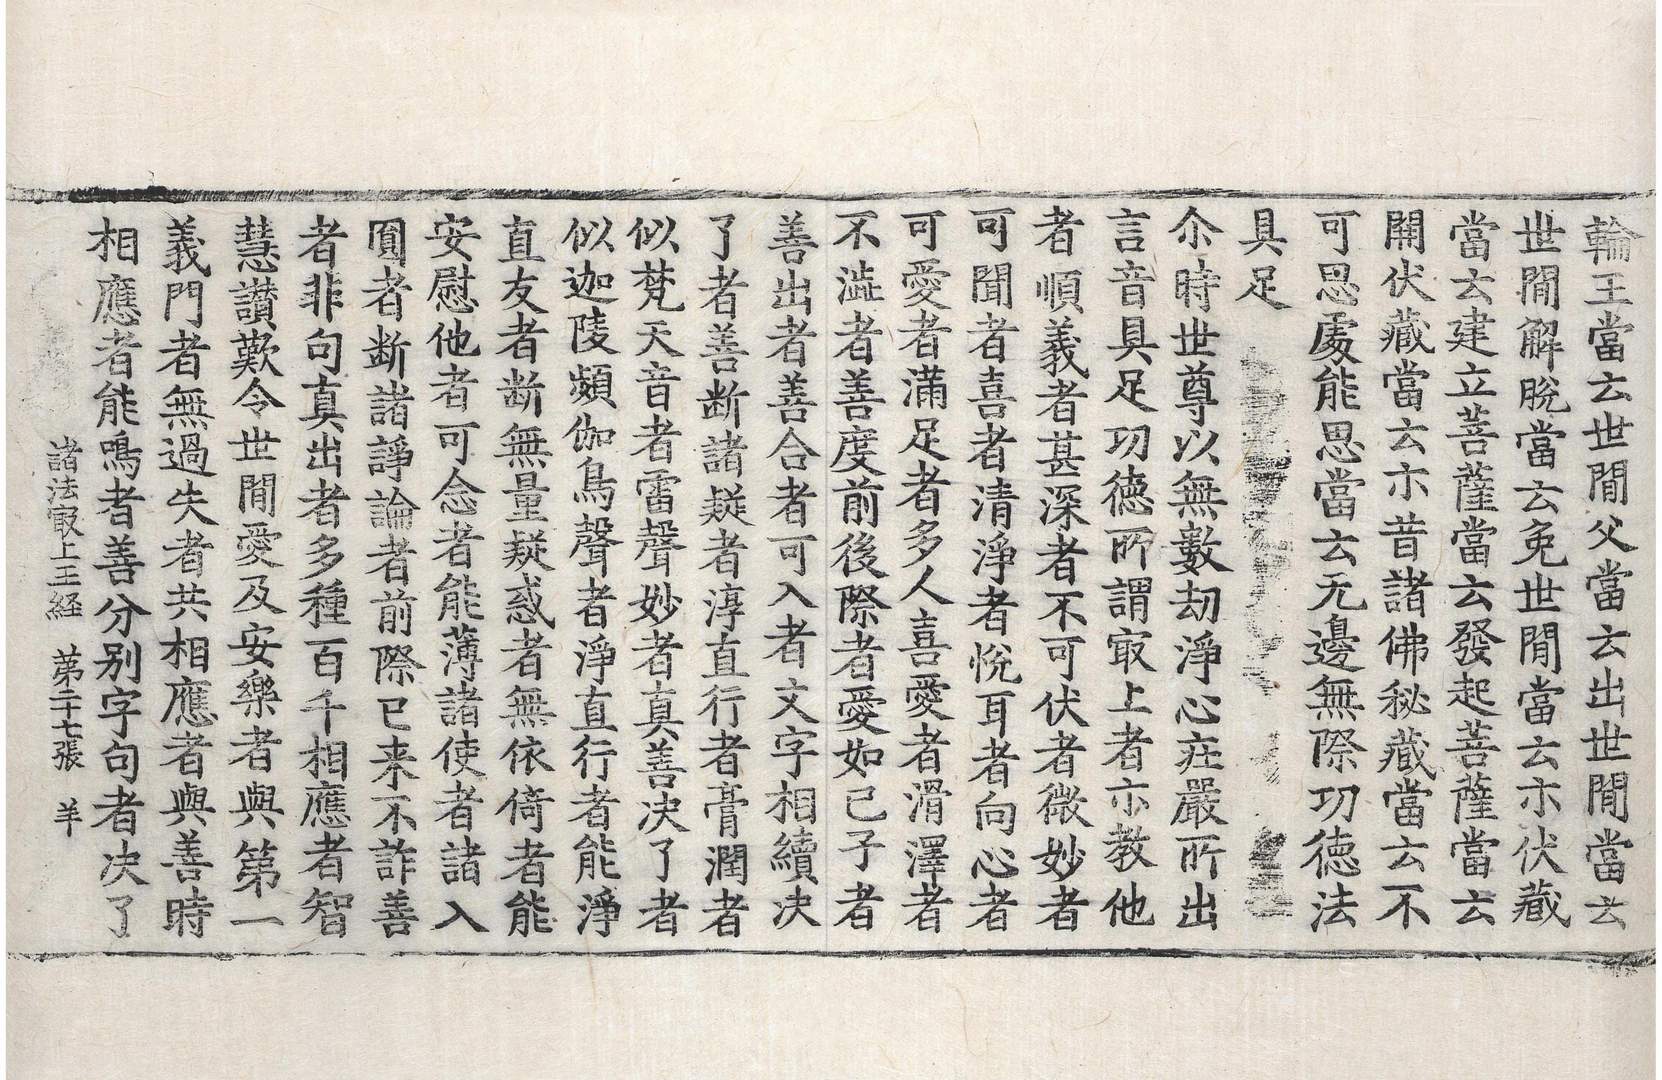 輪王當云世閒父當云出世閒當云
世閒解脫當云免世閒當云示伏藏
當云建立菩薩當云發起菩薩當云
開伏藏當云示昔諸佛秘藏當云不
可思處能思當云无邊無際功德法
具足
尒時世尊以無數劫淨心庄嚴所出
言音具足功德所謂㝡上者示教他
者順義者甚深者不可伏者微妙者
可聞者喜者清淨者悅耳者向心者
可愛者滿足者多人喜愛者滑澤者
不澁者善度前後際者愛如己子者
善出者善合者可入者文字相續决
了者善断諸疑者淳直行者膏潤者
似梵天音者雷聲妙者真善决了者
似迦陵頻伽鳥聲者淨直行者能淨
直友者断無量疑惑者無依倚者能
安慰他者可念者能薄諸使者諸入
圓者断諸諍論者前際已来不詐善
者非句真出者多種百千相應者智
慧讃歎令世閒愛及安樂者與第一
義門者無過失者共相應者與善時
相應者能鳴者善分別字句者决了
諸法㝡上王経 苐二十七張 羊